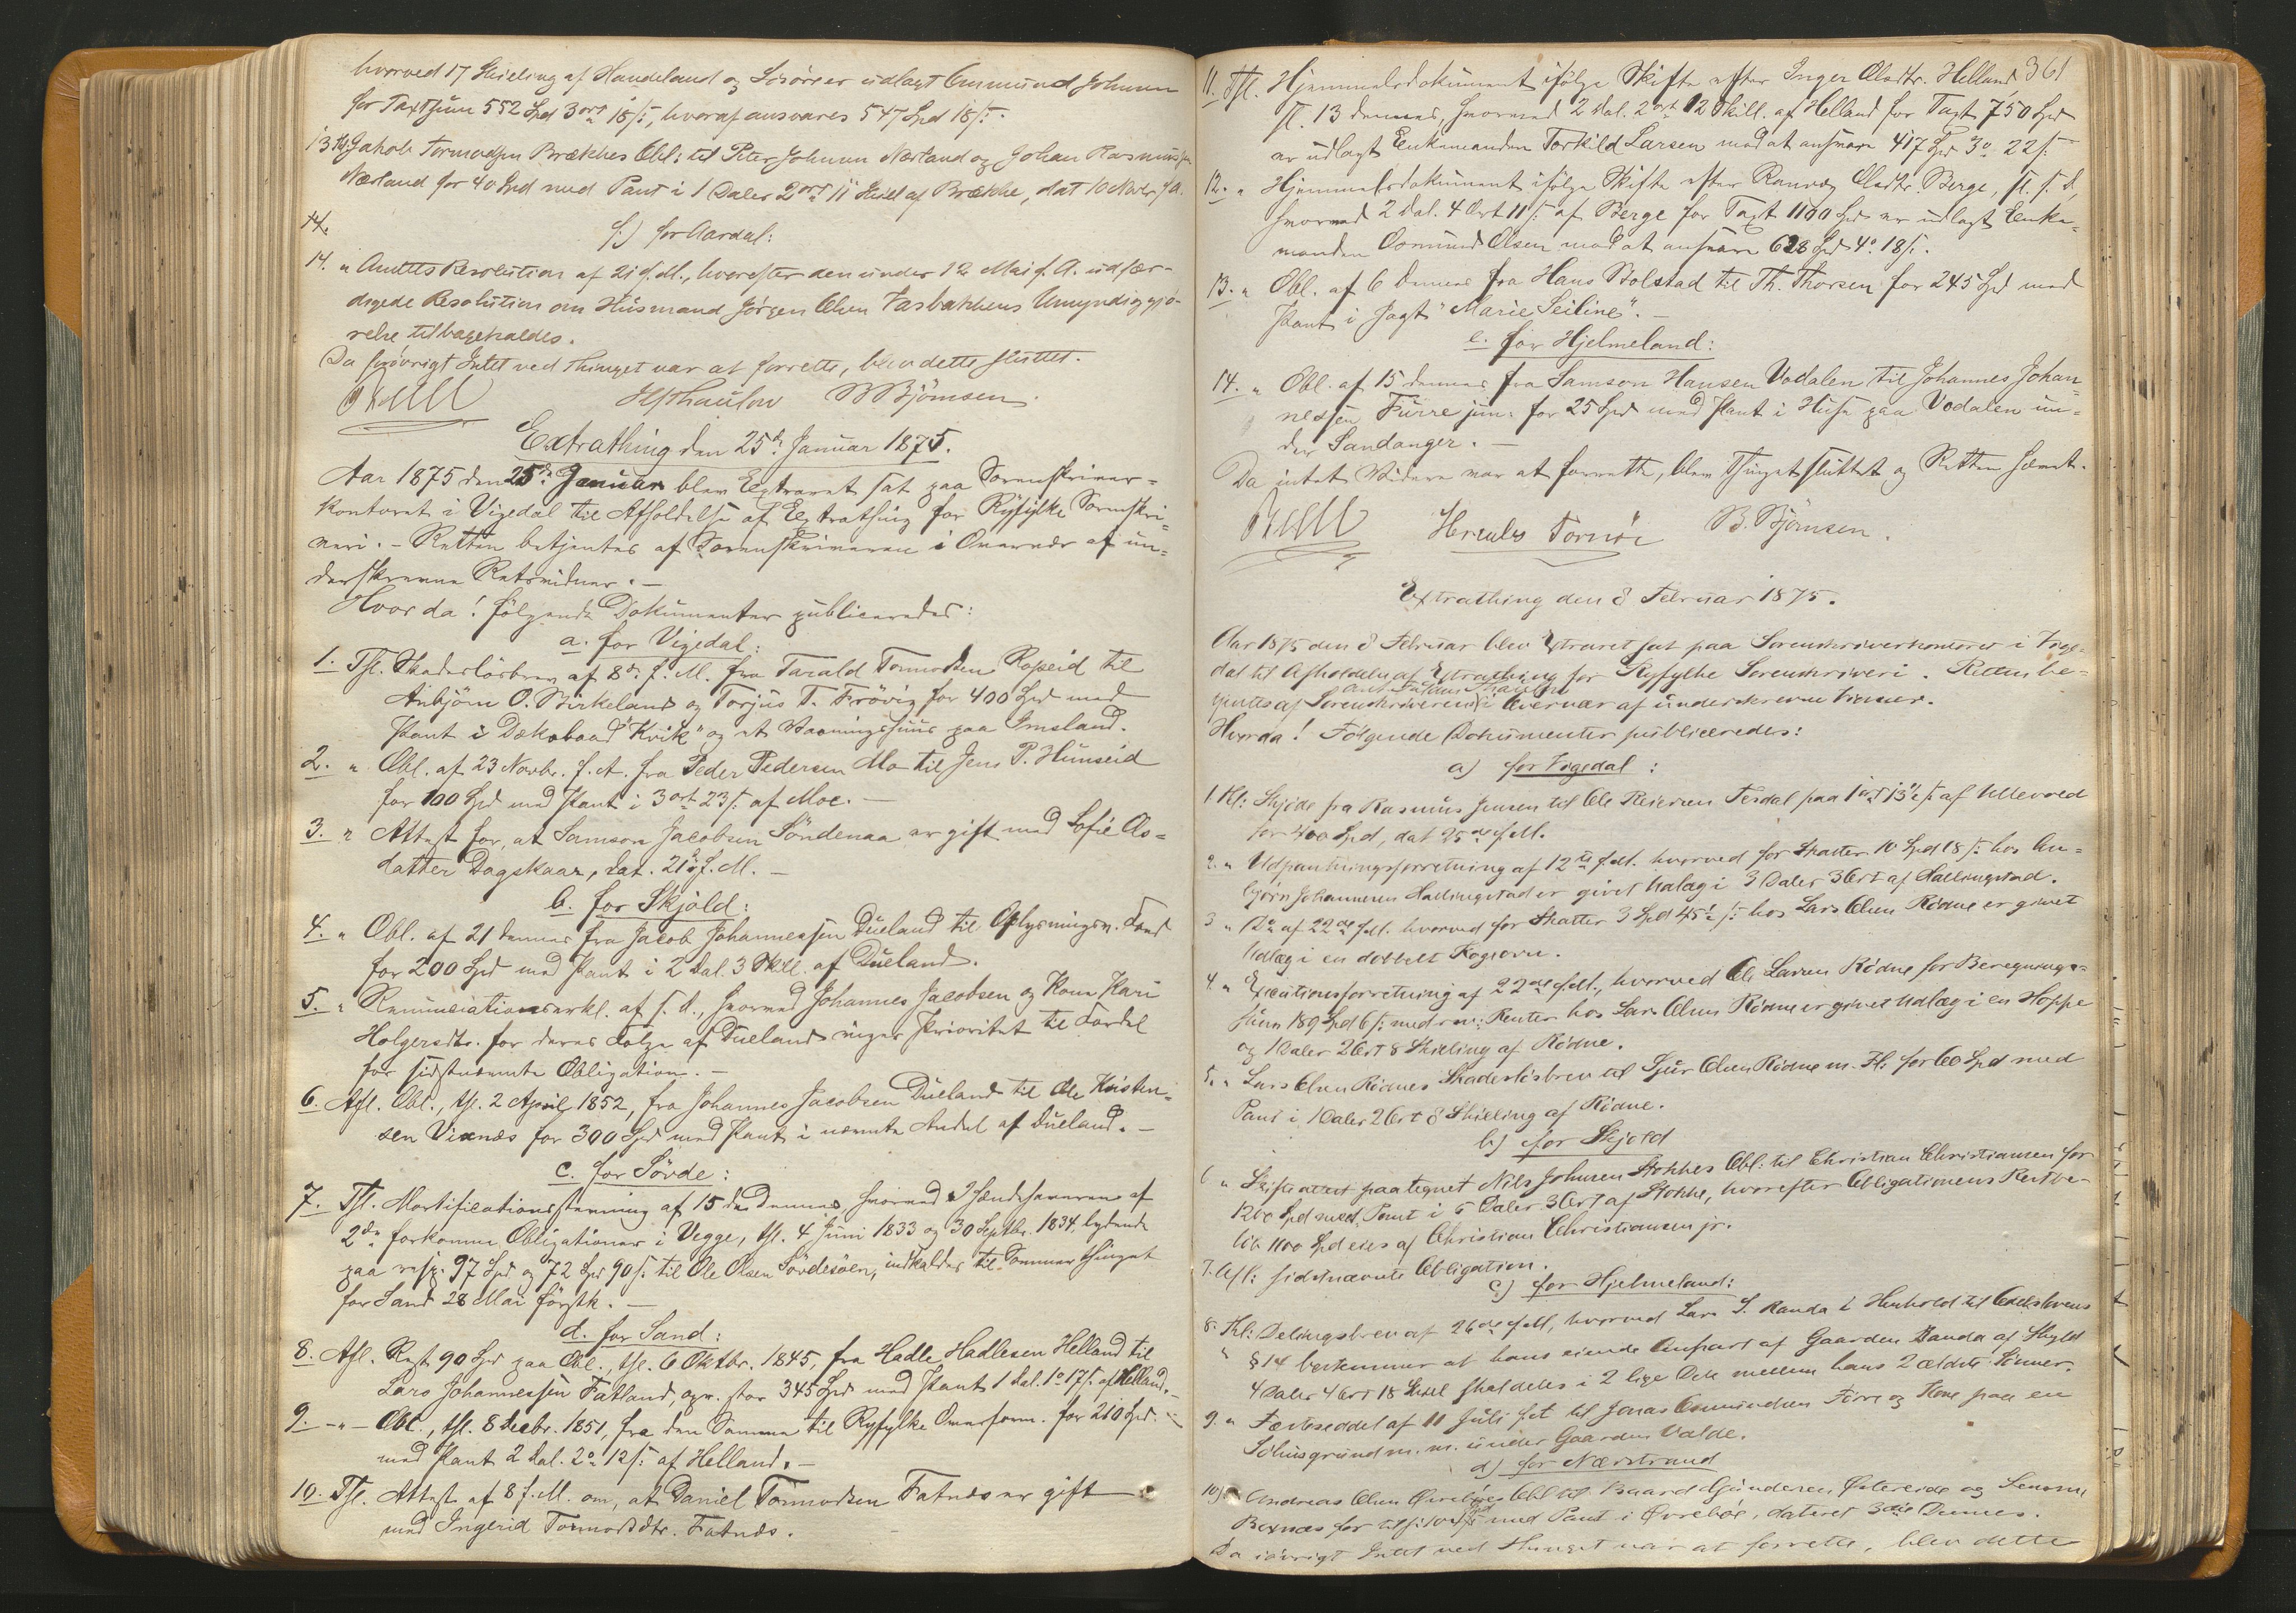 hvorved 17 Skieling af Handeland og Løsøre er udlagt Osmund Johnsen
for Taxtsum 552 Spd 3 ort 18 s:, hvoraf ansvares 547 Spd 18 s:.
13 Thl: Jakob Tormodsen Brækkes Obl: til Peter Johnsen Nærland og Johan Rasmussen
Nærland for 40 Spd med Pant i 1 Daler 2 ort 11 Skill af Brække, dat 10 Novbr f.A.
14.
f.) for Aardal:
14. " Amtets Resolution af 21 f.M., hvorefter den under 12 Mai f.A. udfær-
digede Resolution om Husmand Jørgen Olsen Vasbakkens Umyndiggjø-
relse tilbagekaldes.
Da forøvrigt Intet ved Thinget var at forrette, blev dette sluttet.
H Thaulow B Bjørnsen.
Extrathing den 25de Januar 1875.
Aar 1875 den 25de Januar blev Extraret sat paa Sorenskriver-
kontoret i Vigedal til Afholdelse af Extrathing for Ryfylke Sorenskri-
veri. - Retten betjentes af Sorenskriveren i Overvær af un-
derskrevne Retsvidner. -
Hvor da! følgende Dokumenter publiceredes:
a. for Vigedal:
1. Thl. Skadesløsbrev af 8de f.M. fra Tarald Tormodsen Ropeid til
Anbjørn O. Birkeland og Torjus T. Frøvig for 400 Spd med
Pant i Dæksbaad "Kvik" og et Vaaningshuus paa Imsland.
2. " Obl. af 23 Novbr. f.A. fra Peder Pedersen Mo til Jens P. Hunseid
for 100 Spd med Pant i 3 ort 23 s. af Moe. -
3. " Attest for, at Samson Jacobsen Søndenaa er gift med Sofie As-
datter Dagskaar, dat. 21de f.M. -
b. for Skjold:
4. " Obl. af 21 dennes fra Jacob Johannessen Dueland til Oplysningsv. Fond
for 200 Spd med Pant i 2 Dal. 3 Skill. af Dueland.
5. " Renunciationserkl. af s.d., hvorved Johannes Jacobsen og Kone Kari
Holgersdtr. for deres Folge af Dueland viger Prioritet til Fordel
for sidstnævnte Obligation. -
6. Afl. Obl., thl. 2 April 1852, fra Johannes Jacobsen Dueland til Ole Kristen-
sen Vixnæs for 300 Spd med Pant i nævnte Andel af Dueland. -
c. for Søvde:
7. Thl. Mortificationsstevning af 15de Dennes, hvorved Ihændehaveren af
2de forkomne Obligationer i Vegge, thl. 4 Juni 1833 og 30 Septbr. 1834, lydende
paa resp. 97 Spd og 72 Spd 90 s. til Ole Olsen Søvdesøen, indkaldes til Sommerthinget
for Sand 28 Mai førstk. -
d. for Sand:
8. Afl. Rest 90 Spd paa Obl., thl. 6 Oktbr. 1845, fra Hadle Hadlesen Helland til
Lars Johannessen Fatland, opr. stor 345 Spd med Pant 1 Dal. 1 o. 17 s. af Helland. -
9. - " - Obl., thl. 8 Decbr. 1851, fra den Samme til Ryfylke Overform. for 210 Spd. -
med Pant 2 Dal. 2 o. 12 s. af Helland. -
10. Thl. Attest af 8 f.M. om, at Daniel Tormodsen Fatnæs er gift
med Ingerid Tormodsdtr. Fatnæs. -
361
11. Thl. Hjemmelsdokument ifølge Skifte efter Inger Olsdtr. Helland,
sl. 13 dennes, hvorved 2 Dal. 2 ort 12 Skill. af Helland for Taxt 750 Spd
er udlagt Enkemanden Torkild Larsen med at ansvare 417 Spd 3 o. 22 s.
12. " Hjemmelsdokument ifølge Skifte efter Ranveg Olsdtr. Berge, sl. s.d.,
hvorved 2 Dal. 4 Ort 11 s. af Berge for Taxt 1100 Spd er udlagt Enke-
manden Osmund Olsen med at ansvare 628 Spd 4 o. 18 s.
13. " Obl. af 6 dennes fra Hans Bolstad til Th. Thorsen for 245 Spd med
Pant i Jagt "Marie Seiline". -
e. for Hjelmeland:
14. " Obl. af 15 dennes fra Samson Hansen Vodalen til Johannes Johan-
nessen Furre jun: for 25 Spd med Pant i Huse paa Vodalen un-
der Sandanger. -
Da intet Videre var at forrette, blev Thinget sluttet og Retten hævet.
Hercules Tornøe B. Bjørnsen.
Extrathing den 8 Februar 1875.
Aar 1875 den 8 Februar blev Extraret sat paa Sorenskriverkontoret i Vige-
dal til Afholdelse af Extrathing for Ryfylke Sorenskriveri. Retten be-
tjentes af Sorenskriveren i Overvær af underskrevne Vidner.
Hvorda! Følgende Dokumenter publiceredes:
a) for Vigedal:
1 Thl: Skjøde fra Rasmus Jensen til Ole Reiersen Tesdal paa 1 ort 13½ s. af Ullevold
for 400 Spd, dat 25de f.M.
2. " Udpantningsforretning af 12te f.M. hvorved for Skatter 10 Spd 18 s: hos An-
bjørn Johannesen Hallingstad er givet Udlæg i 3 Daler 3 Ort af Hallingstad.
3 " Do af 22de f.M. hvorved for Skatter 3 Spd 45½ s: hos Lars Olsen Rødne er givet
Udlæg i en dobbelt Kogeovn.
4. " Executionsforretning af 22de f.M., hvorved Ole Larsen Rødne for Beregnings-
sum 189 Spd 6 s: med Renter hos Lars Olsen Rødne er givet Udlæg i en Hoppe
og 1 Daler 2 Ort 8 Skieling af Rødne.
5. " Lars Olsen Rødnes Skadesløsbrev til Sjur Olsen Rødne m. Fl: for 60 Spd med
Pant i 1 Daler 2 Ort 8 Skieling af Rødne.
b) for Skjold
6 " Skifteattest paategnet Nils Johnsen Stokkes Obl: til Christian Christiansen for
1200 Spd med Pant i 5 Daler 3 Ort af Stokke, hvorefter Obligationens Restbe-
løb 1100 Spd eies af Christian Christiansen jr.
7. Afl: sidstnævnte Obligation.
c) for Hjelmeland:
8. Thl: Delingsbrev af 26de f.M., hvorved Lars S. Randa i Henhold til Odelslovens
" § 14 bestemmer at hans eiende Anpart af Gaarden Randa af Skyld
4 Daler 4 Ort 18 Skill skal deles i 2 lige Dele mellem hans 2 ældste Sønner.
9. " Fæsteseddel af 11 Juli f.A. til Jonas Osmundsen Førre og Kone paa en
Søhusgrund m.m. under Gaarden Valde.
d) for Nærstrand
10) " Andreas Olsen Øvrebøes Obl til Baard Gundersen Østereide og
Boxnæs for med Pant i Øvrebøe, dateret 3die Dennes.
Da iøvrigt Intet ved Thinget var at forrette, blev dette